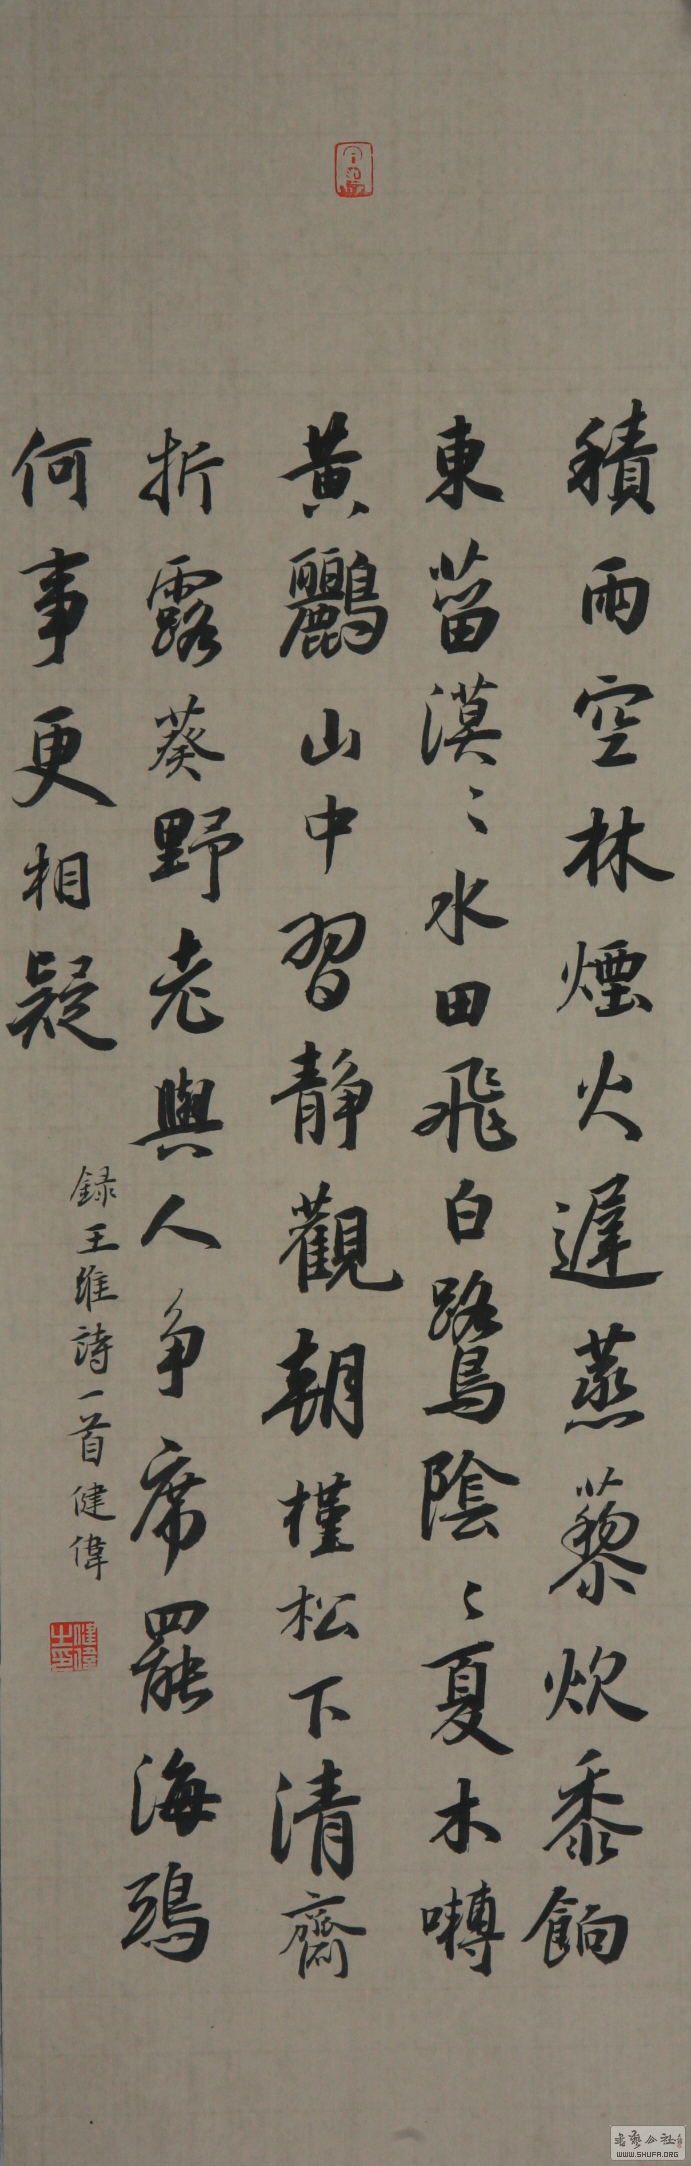 積雨空林煙火遲蒸藜炊黍餉
東菑漠〻水田飛白鷺陰〻夏木囀
黃鸝山中習靜觀朝槿松下清齋
折露葵野老與人争席罷海鷗
何事更相疑
録王維詩一首健偉
健偉之印
书艺公社
WWW.SHUFA.ORG